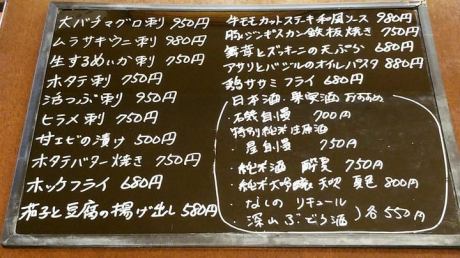 大バチマグロ刺 950円
ムラサキウニ刺 980円
生するめいか刺 750円
ホタテ刺 750円
活つぶ刺 950円
ヒラメ刺 750円
甘エビの漬け 500円
ホタテバター焼き 750円
ホッケフライ 680円
茄子と豆腐の揚げ出し 580円
牛モモカットステーキ和風ソース 980円
豚ジンギスカン鉄板焼き 750円
舞茸とズッキーニの天ぷら 680円
アサリとバジルのオイルパスタ 880円
鶏ササミフライ 680円
日本酒・果実酒 おすすめ
・磯自慢 700円
・特別純米 原酒
屋自慢 750円
・純米酒 酔 750円
・純米大吟醸 天吹 夏色 800円
・なしのリキュール
・深山ぶどう酒 ) 各550円